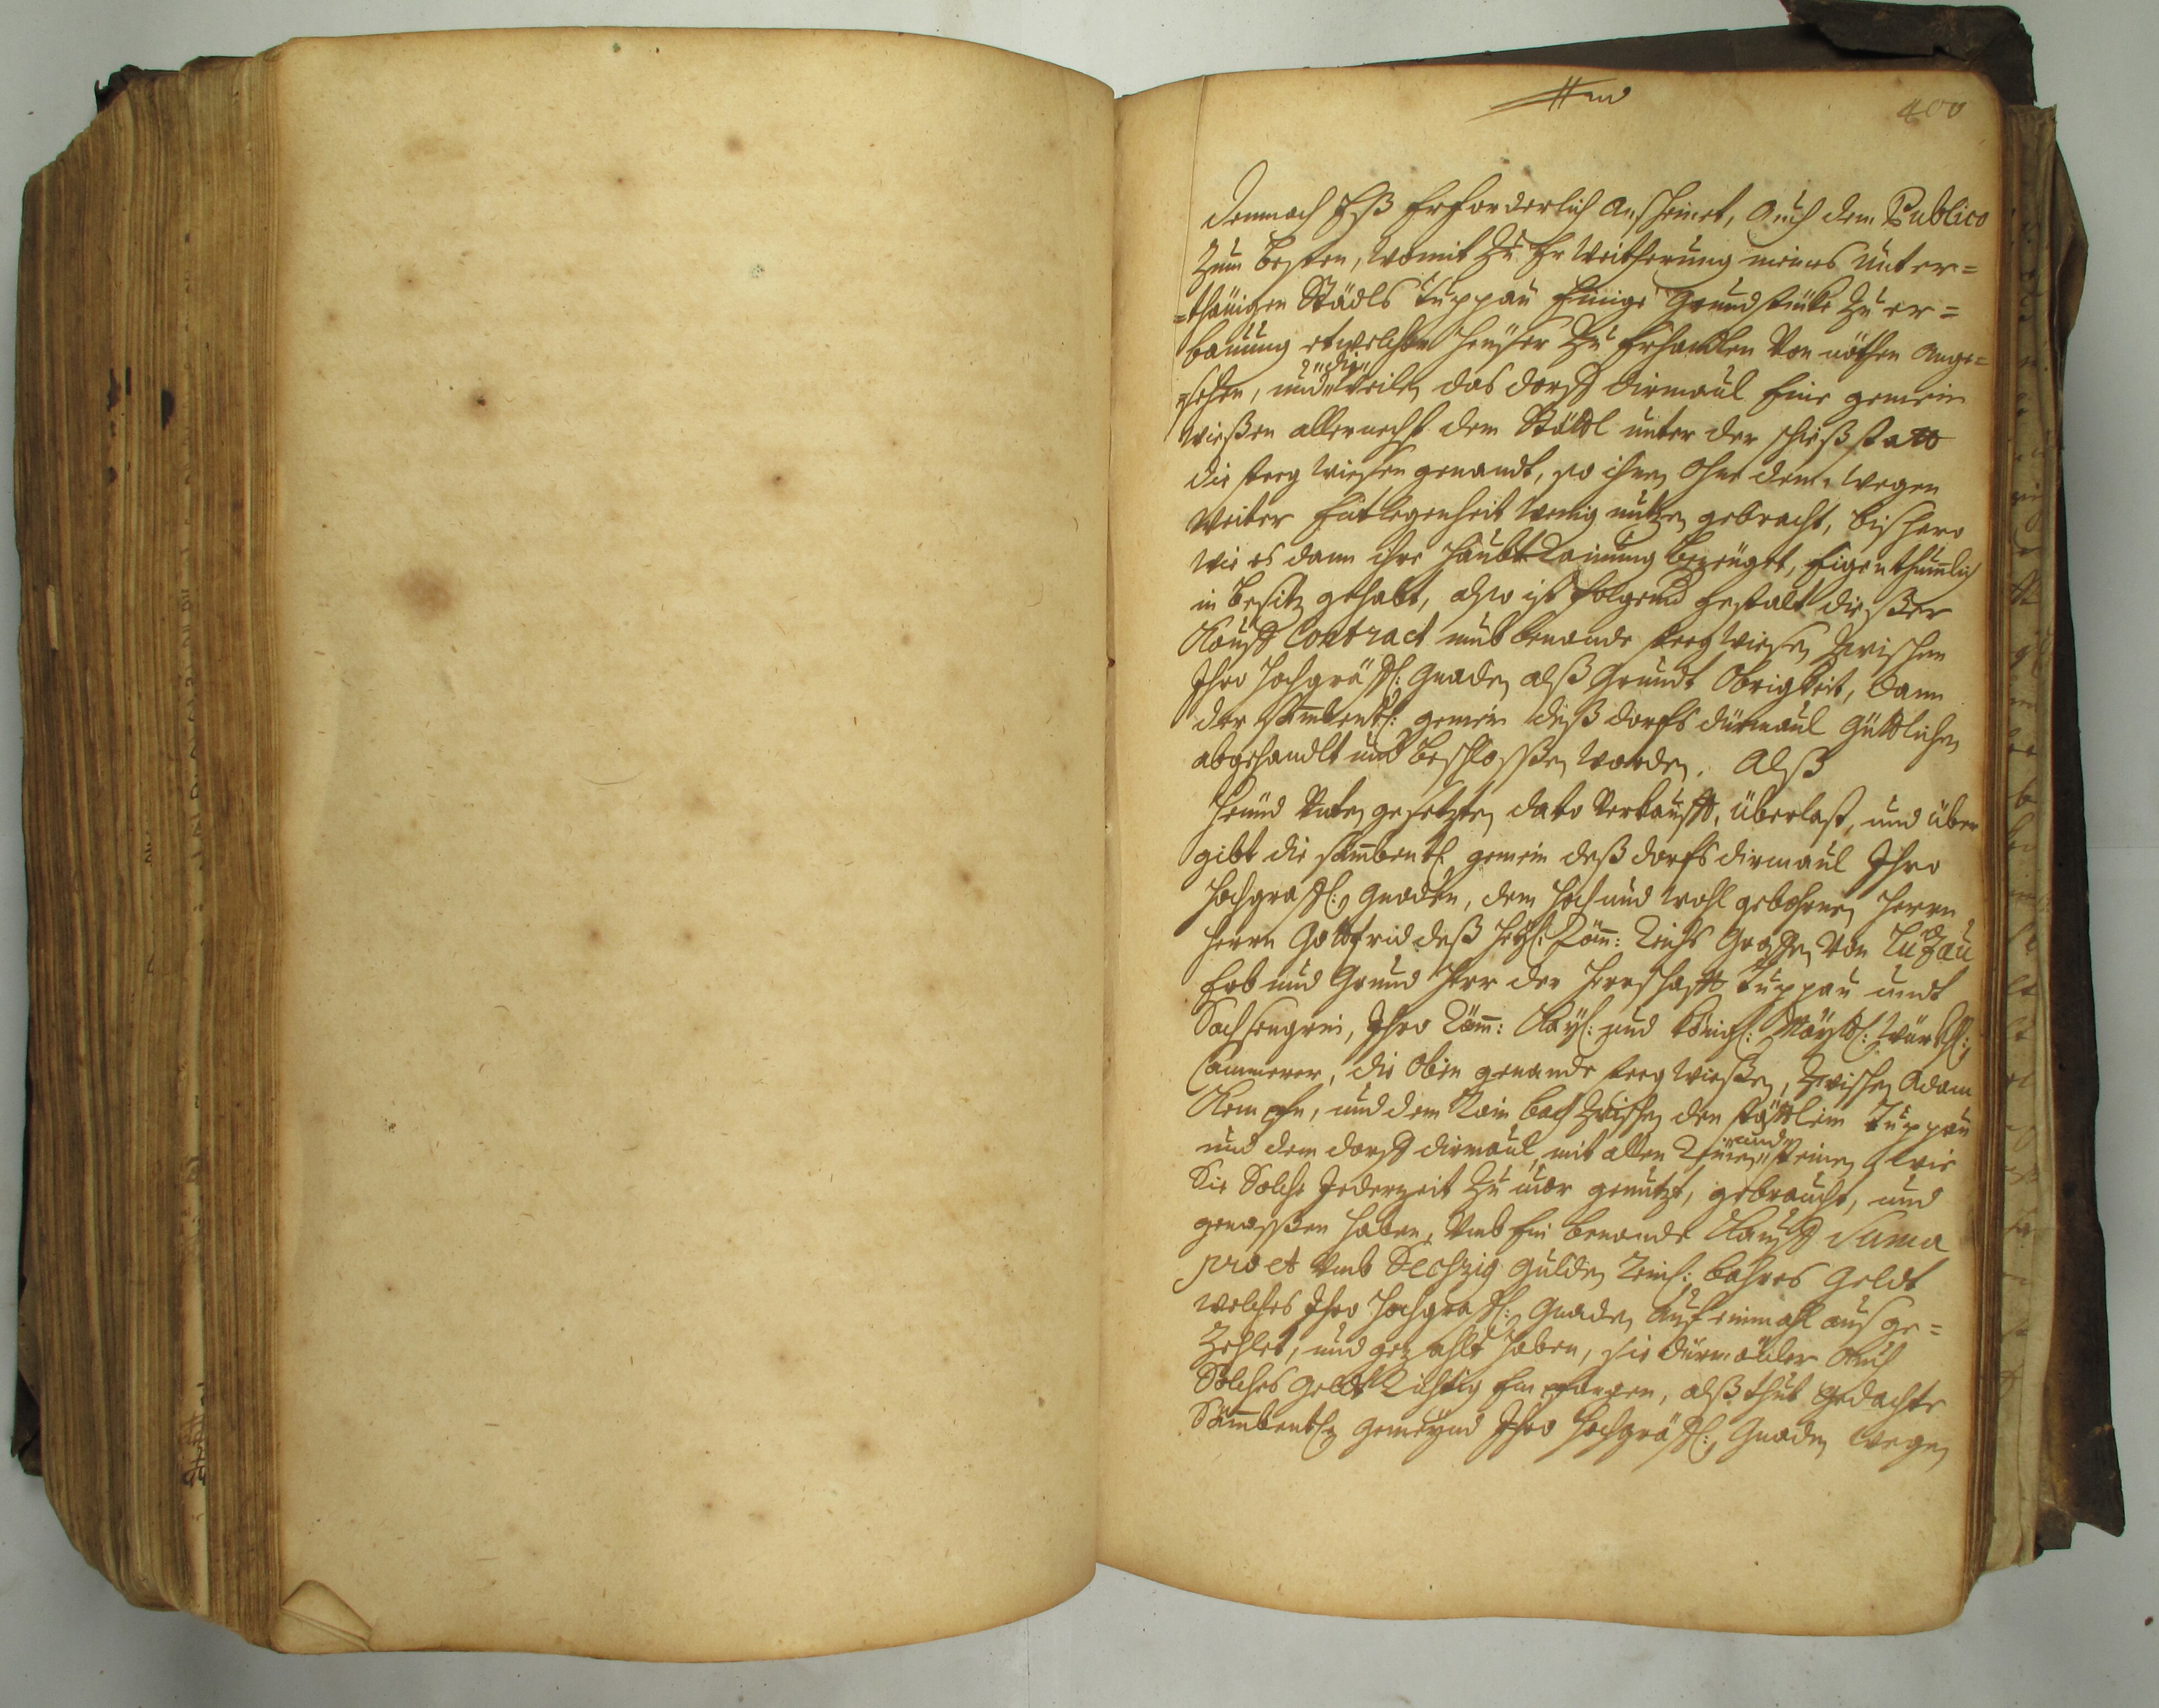 400
Demnach Eß Erforderlich anscheinet, auch dem Publico
Zum besten, womit zu Erweitherung meines unter=
=thänigen Städls Duppau Einige Grundstuke zu er=
bauung etwelcher heuser zu Erhandlen von nöthen ange=
die
=sehen, und weilen das dorff dirmaul Eine gemein
wießen allernechst dem Stättl unter der schießstatt
die steeg wießen genandt, so ihnen ohne dem wegen
weiter Entlegenheit wenig nutzen gebracht, bishero
wie es dann ihre haubt Rainung bezeuget, Eigenthumlich
in besitz gehabt, also ist folgend gestalt dießer
Kauff Contract umb benande steeg wießen zwischen
Ihro hochgräffl: Gnaden alß Grundt Obrigkeit, dann
der sambentl: gemein deß dorfs dürmaul güttlichen
abgehandlt und beschlossen worden. Alß
heund unten gesetzten dato verkaufft, überlast, und über
gibt die sambentl gemein deß dorfs dirmaul Ihro
hochgraffl: Gnaden, dem hoch und wohl gebohrnen herrn
herrn Gottfrid deß heyl: Röm: Reichs Graffen von Lüzau
Erb und Grund herr der herrschafft Duppau undt
Sachsengrün, Ihro Röm: Kayl: und Königl: Mayttl: würkhl:
Cammerer, die oben genande steeg wießen, zwischen Adam
und dem Rain bach zwischen den stättlein Duppau
und
und dem dorff dirmaul, mit allen Reinen steinen wie
Sie Solche Jederzeit zuuor genutzt, gebraucht, und
genossen haben, umb Ein benande Kauff Suma
pr und Sechzig gulden Reinl: bahres geldt
welches Ihro hochgraffl: Gnaden auf einmahl ausge=
zehlet, und gezahlt haben, sie dürmauler auch
Solches geldt Richtig Empfangen, alß thut gedachte
Sambentl gemeynd Ihro hochgräffl: Gnaden wegen